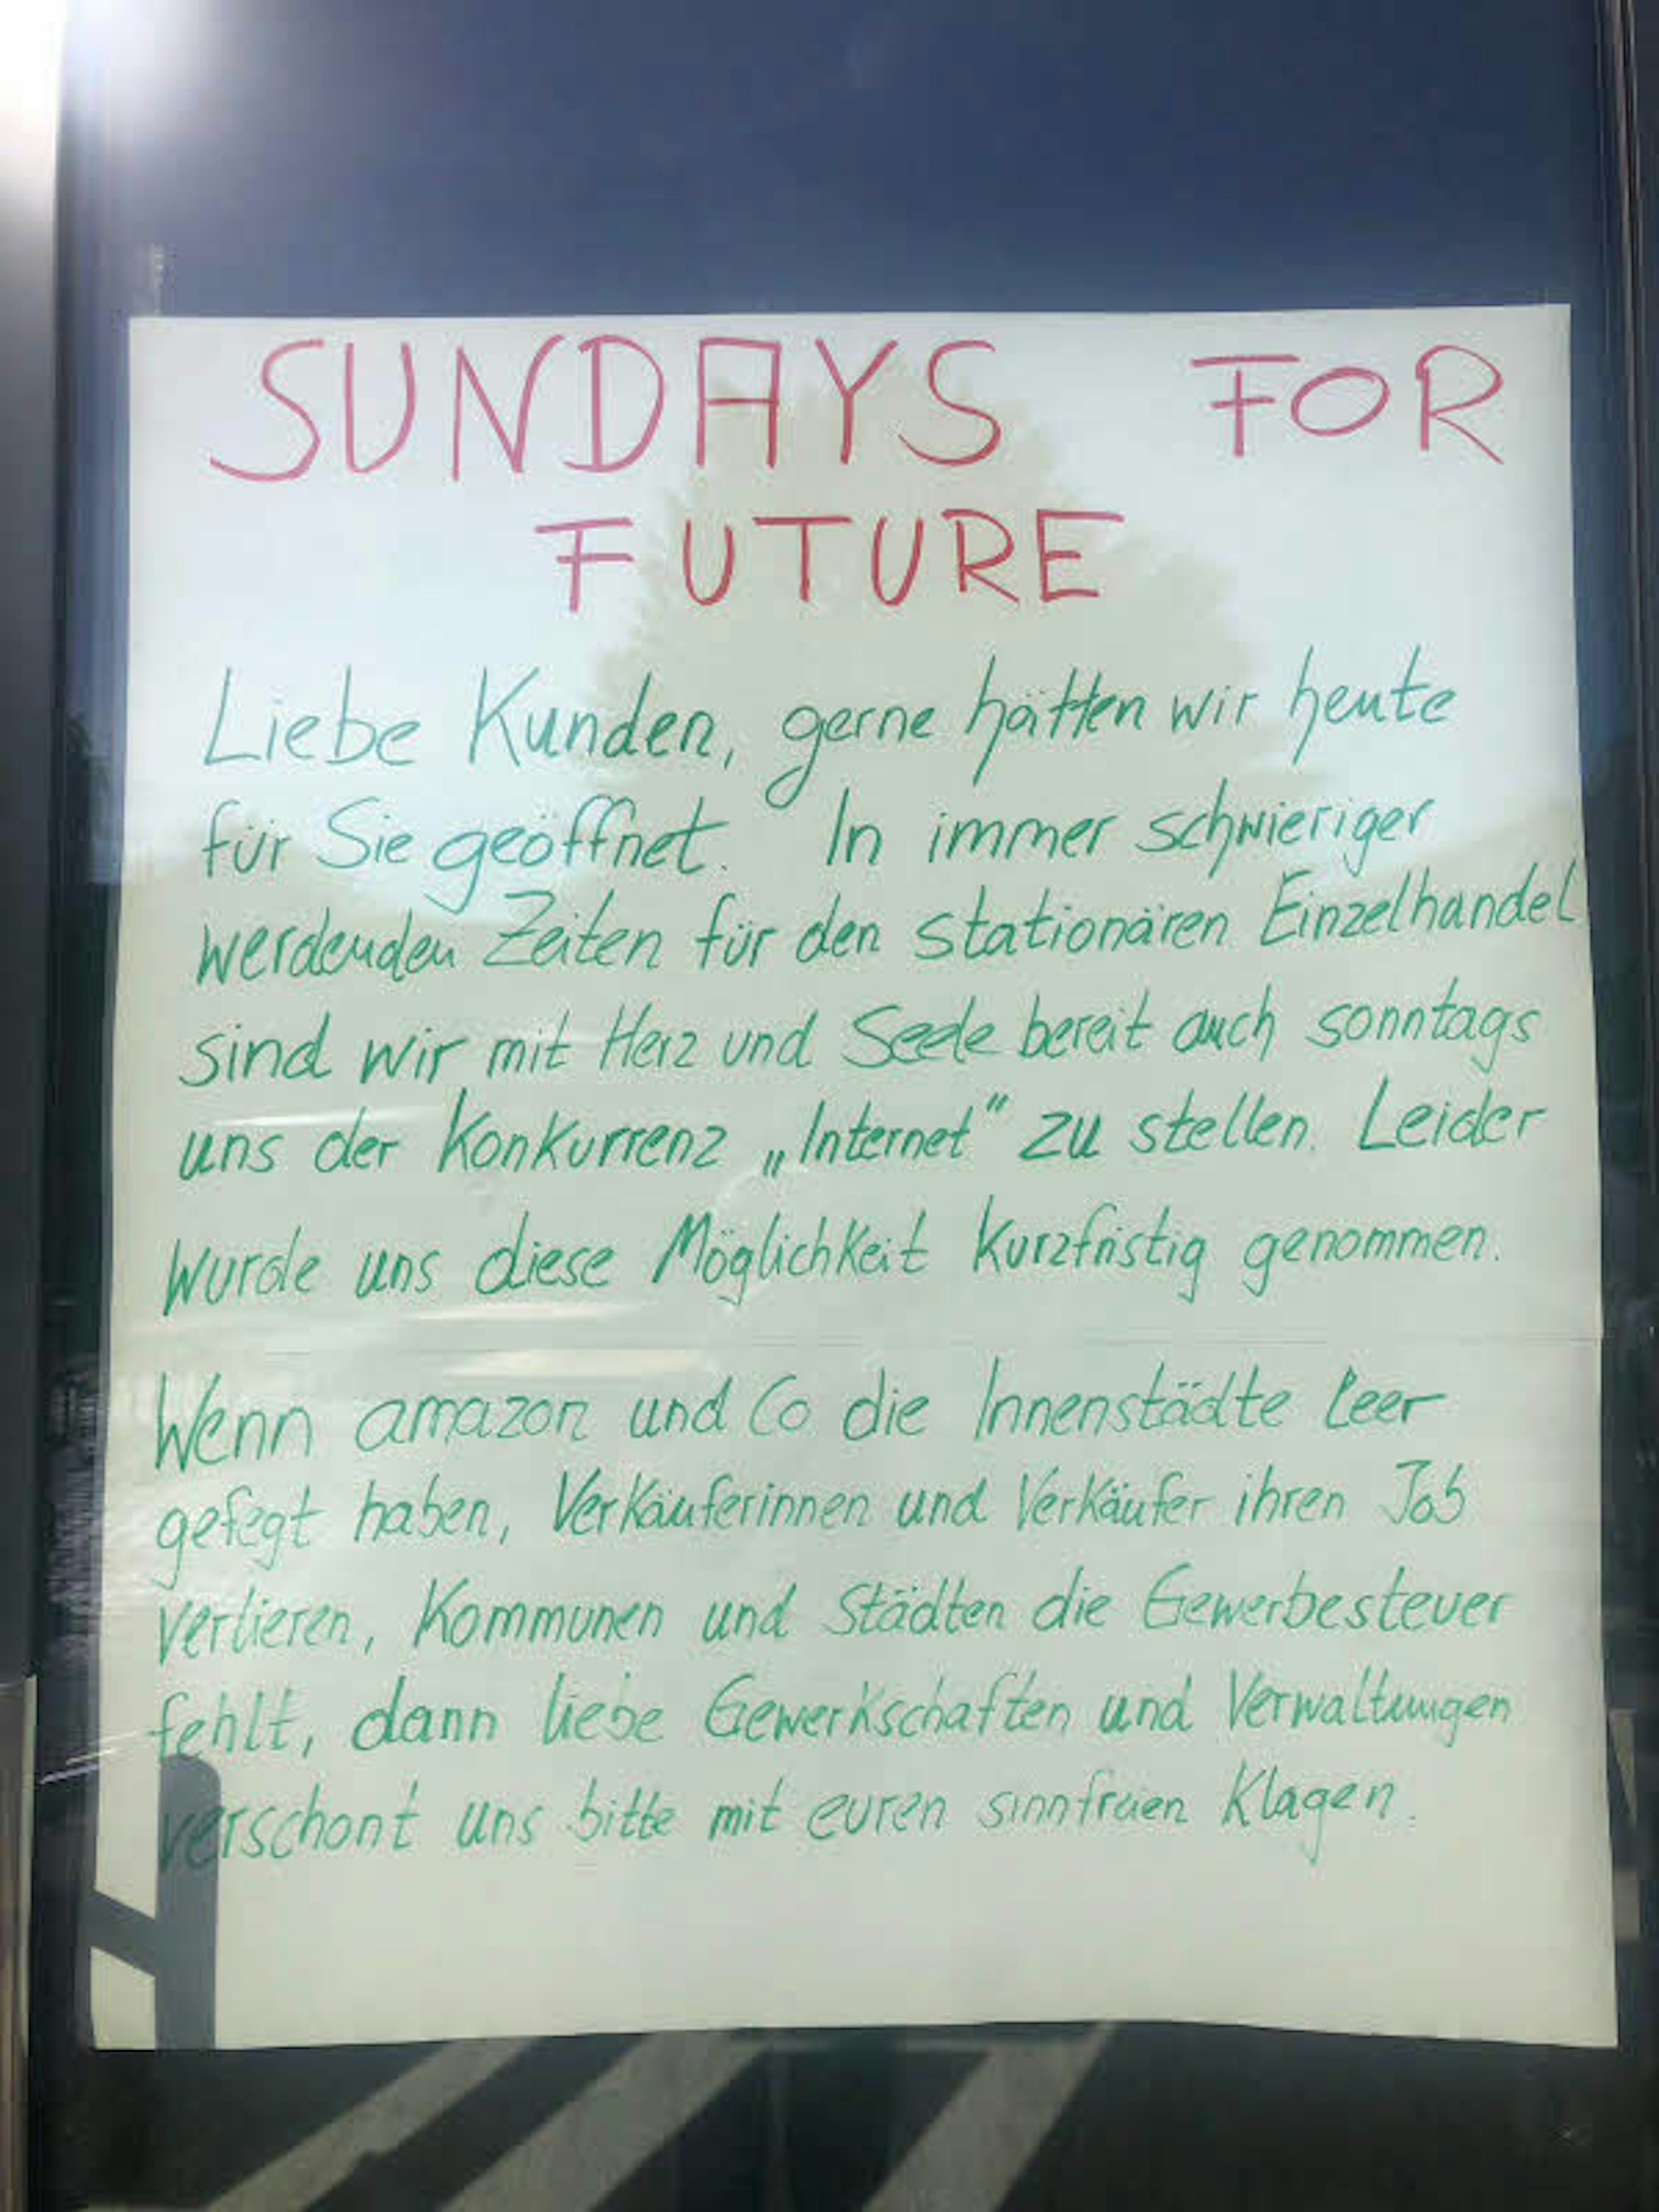 SUNDAYS FOR
FUTURE
Liebe Kunden, gerne hätten wir heute
für Sie geöffnet. In immer schwieriger
werdenden Zeiten für den stationären Einzelhandel
sind wir mit Herz und Seele bereit auch sonntags
uns der Konkurrenz „Internet“ zu stellen. Leider
wurde uns diese Möglichkeit kurzfristig genommen.
Wenn amazon und Co die Innenstädte leer
gefegt haben, Verkäuferinnen und Verkäufer ihren Job
verlieren, Kommunen und Städten die Gewerbesteuer
fehlt, dann liebe Gewerkschaften und Verwaltungen
verschont uns bitte mit euren sinnfreien Klagen.